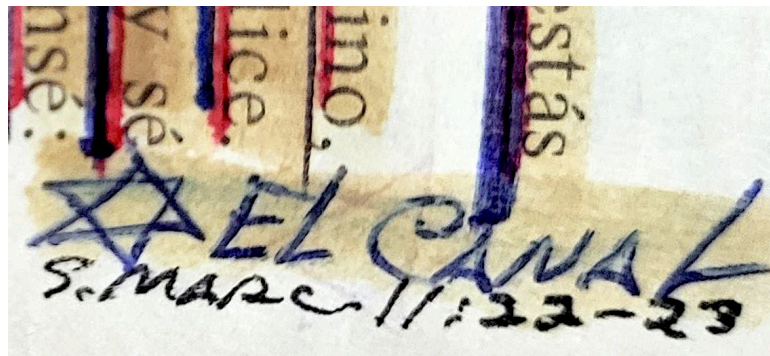 nsé:
y sé
lice.
ino,
estás
EL CANAL
S. MARC 11:22-23